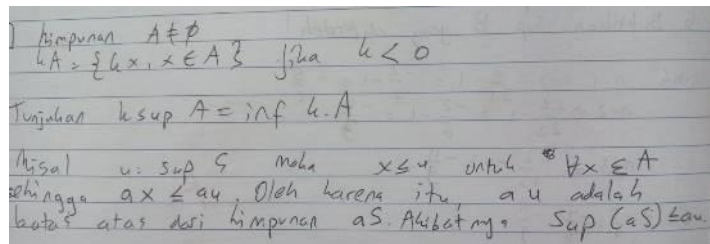 ] himpunan A ≠ ∅
kA = {kx, x ∈ A} jika k < 0
Tunjukan k sup A = inf k.A
Misal u = sup S maka x ≤ u untuk ∀x ∈ A
sehingga ax ≤ au. Oleh karena itu, au adalah
batas atas dari himpunan aS. Akibatnya Sup (aS) ≤ au.